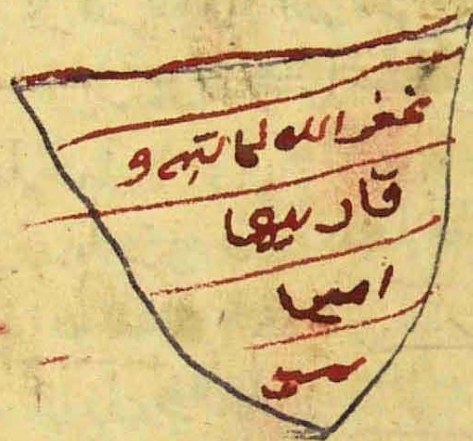 غفر الله لكاتبه و
قارييها
امين